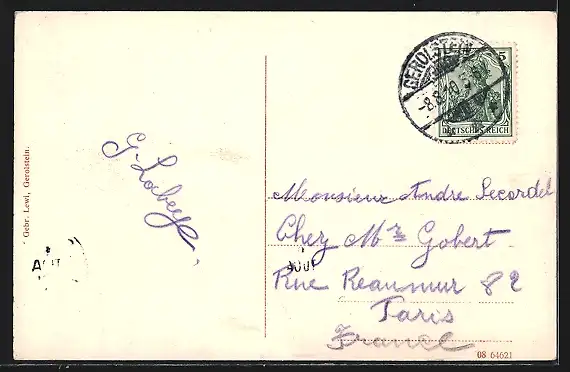 GEROLSTEIN
-8.8.10.
5
DEUTSCHES REICH
Gebr. Lewi, Gerolstein.
Monsieur Andre Lecordel
Chez Mr Gobert
AOUT
AOUT
Rue Reaumur 82
Paris
France
08 64621